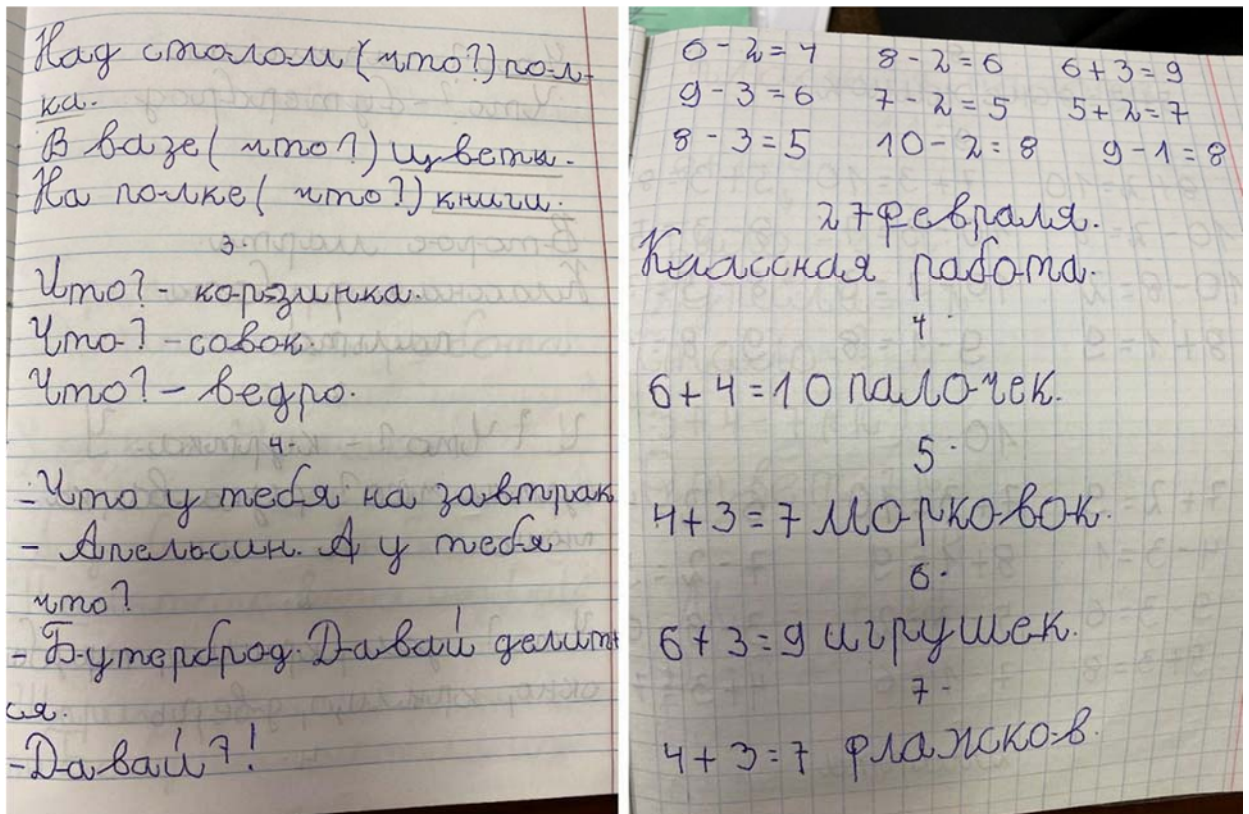 Над столом (что?) пол-
ка.
В вазе (что?) цветы.
На полке (что?) книги.
3.
Что? - корзинка.
Что? - совок.
Что? - ведро.
4.
- Что у тебя на завтрак
- Апельсин. А у тебя
что?
- Бутерброд. Давай делить
ся.
- Давай?!
6 - 2 = 4 8 - 2 = 6 6 + 3 = 9
9 - 3 = 6 7 - 2 = 5 5 + 2 = 7
8 - 3 = 5 10 - 2 = 8 9 - 1 = 8
27 февраля.
Классная работа.
4.
6 + 4 = 10 палочек.
5.
4 + 3 = 7 морковок.
6.
6 + 3 = 9 игрушек.
7.
4 + 3 = 7 флажков.